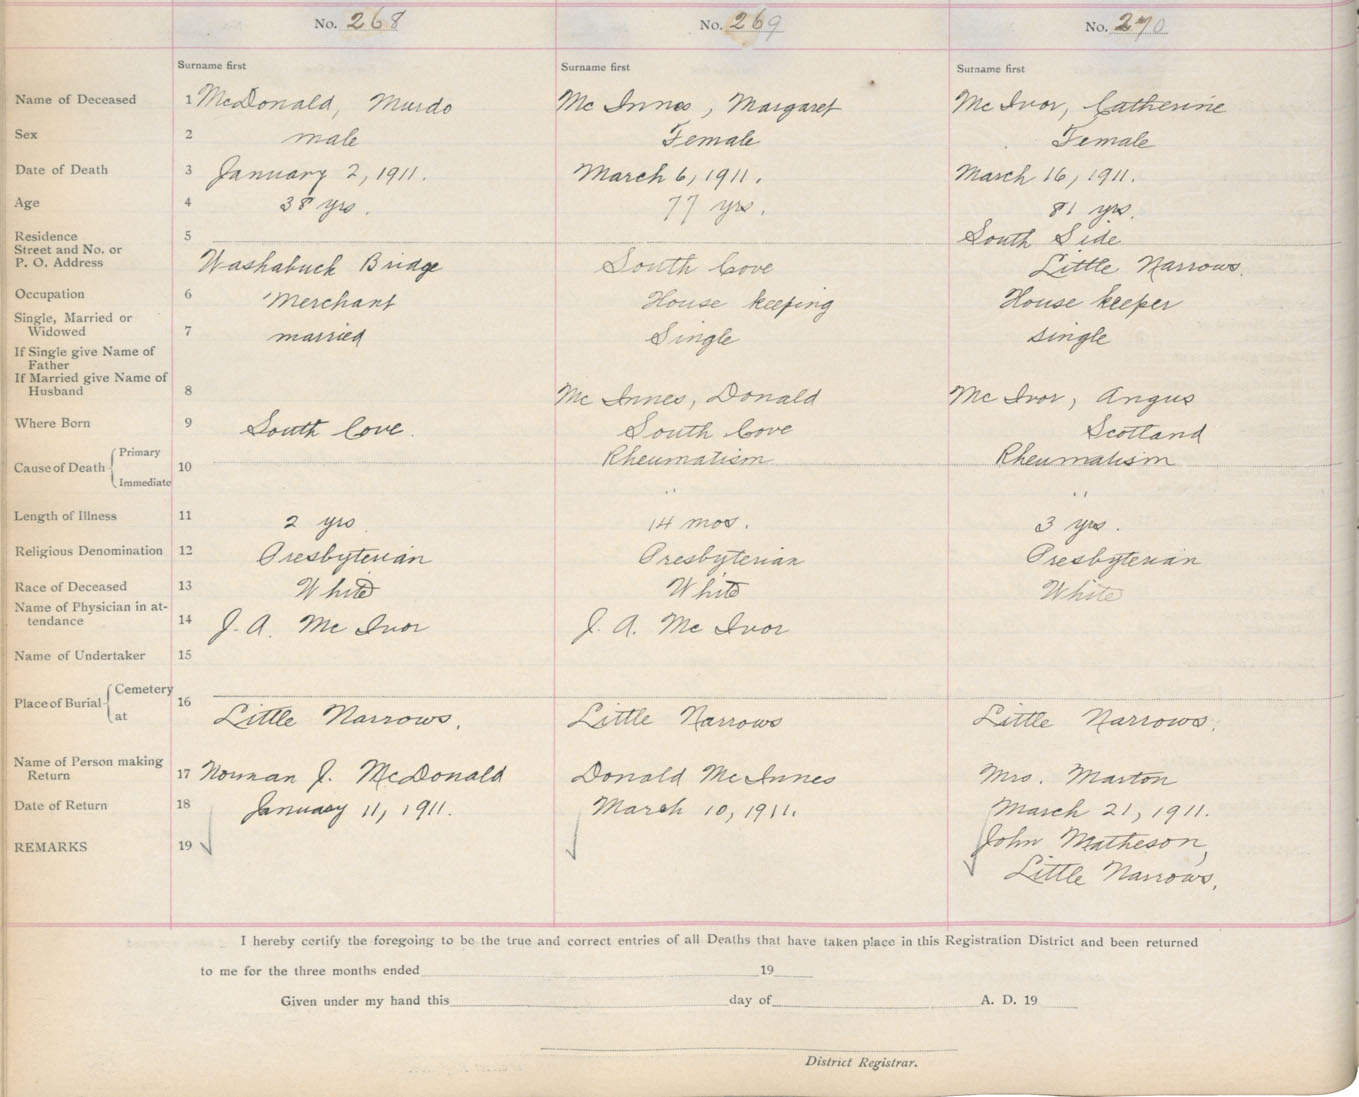 No. 268 No. 269 No. 270
Surname first Surname first Surname first
Name of Deceased 1 McDonald, Murdo Mc Innes, Margaret Mc Ivor, Catherine
Sex 2 male Female Female
Date of Death 3 January 2, 1911. March 6, 1911. March 16, 1911.
Age 4 38 yrs. 77 yrs. 81 yrs.
Residence 5 South Side
Street and No. or
P. O. Address Washabuck Bridge South Cove Little Narrows.
Occupation 6 Merchant House keeping House keeper
Single, Married or
Widowed 7 married Single single
If Single give Name of
Father
If Married give Name of
Husband 8 Mc Innes, Donald Mc Ivor, Angus
Where Born 9 South Cove. South Cove Scotland
Cause of Death Primary 10 Rheumatism Rheumatism
Immediate " "
Length of Illness 11 2 yrs. 14 mos. 3 yrs.
Religious Denomination 12 Presbyterian Presbyterian Presbyterian
Race of Deceased 13 White White White
Name of Physician in at-
tendance 14 J. A. Mc Ivor J. A. Mc Ivor
Name of Undertaker 15
Place of Burial Cemetery 16
at Little Narrows. Little Narrows Little Narrows.
Name of Person making
Return 17 Norman J. McDonald Donald McInnes Mrs. Marton
Date of Return 18 January 11, 1911. March 10, 1911. March 21, 1911.
REMARKS 19 John Matheson,
Little Narrows.
I hereby certify the foregoing to be the true and correct entries of all Deaths that have taken place in this Registration District and been returned
to me for the three months ended 19
Given under my hand this day of A. D. 19
District Registrar.